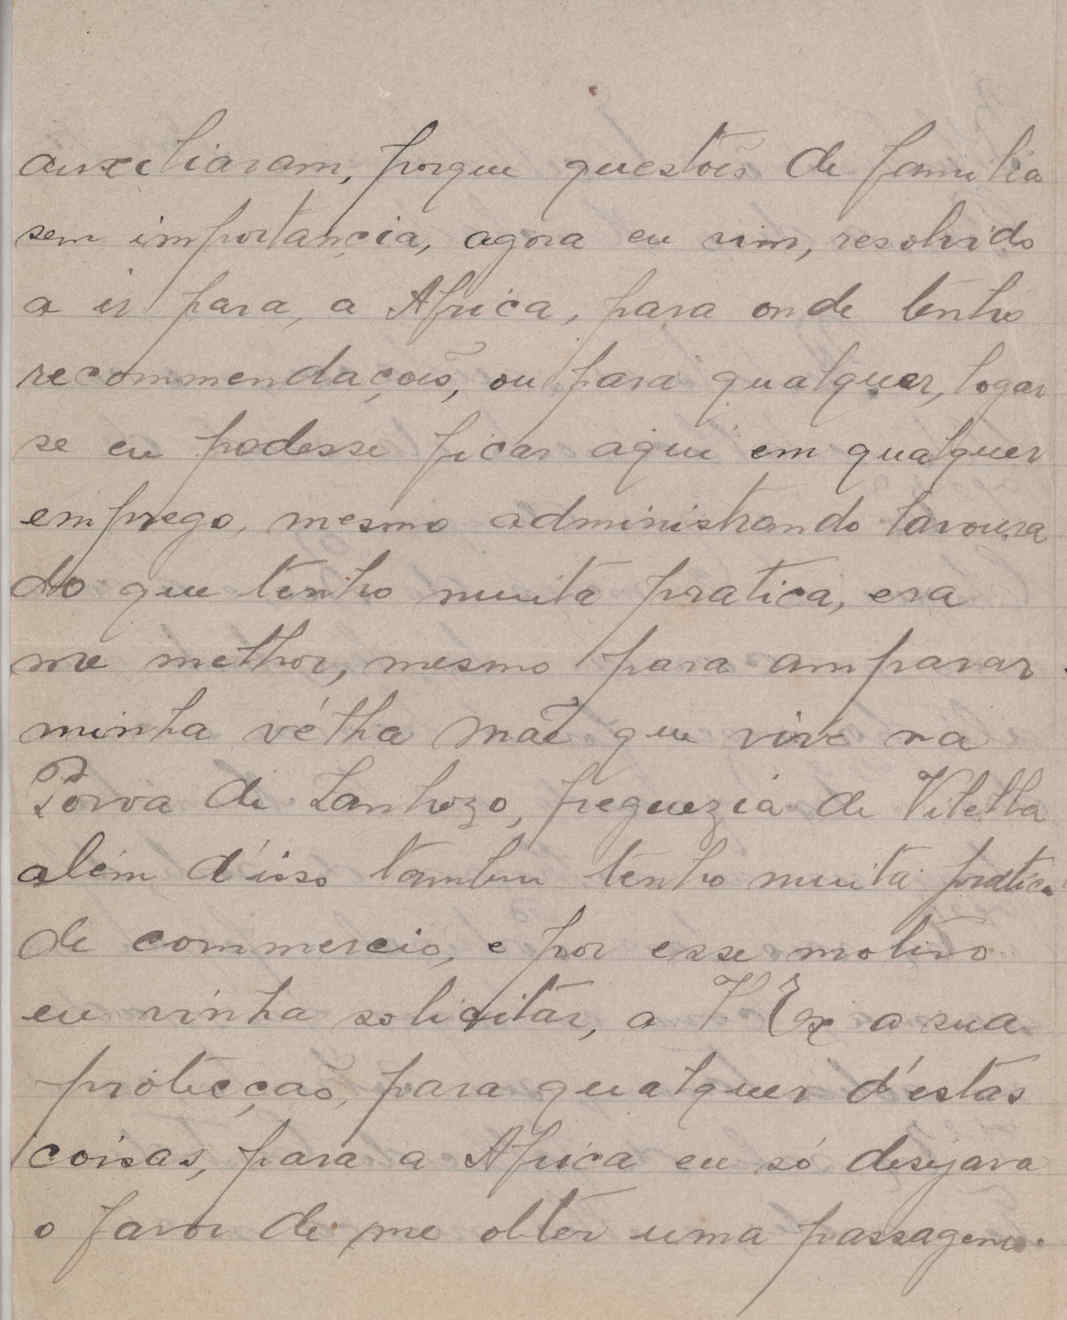 auxiliaram, porque questões de familia
sem importancia, agora eu vim, resolvido
a ir para, a Africa, para onde tenho
recommendações, ou para qualquer, logar
se eu podesse ficar aqui em qualquer
emprego, mesmo administrando lavoura
do que tenho muita pratica, era
me melhor, mesmo para amparar
minha vélha Mãe que vive na
Povoa de Lanhozo, freguezia de Vilella
além d'isso tambem tenho muita pratica
de commercio, e por esse motivo
eu vinha solicitar, a V Ex a sua
protecção, para qualquer d'estas
coisas, para a Africa eu só desejava
o favor de me obter uma passagem